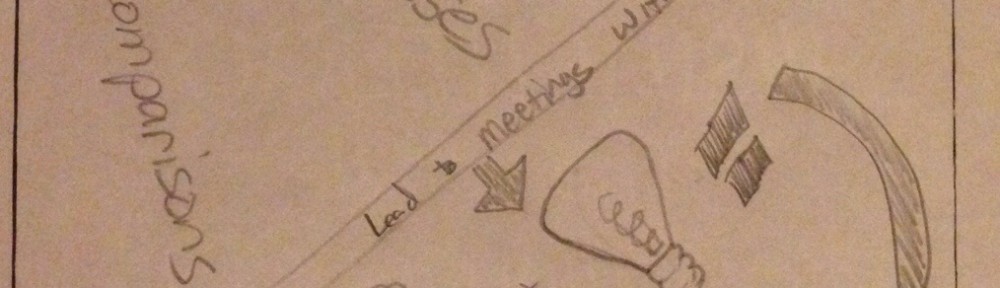 omparisons
Lead to meetings wit